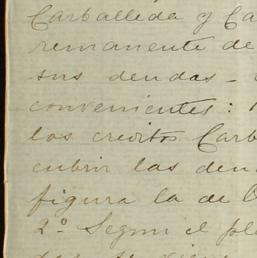 Carballeda y Ca
remanente de
sus deudas -
convenientes:
los creditos Carb
cubrir las deu
figura la de
2º Segun el pla